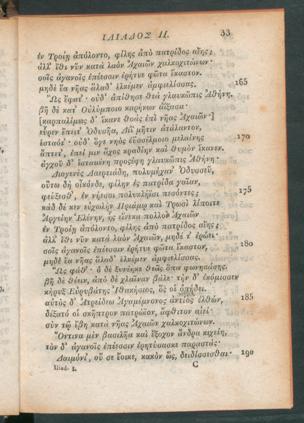 ΙΛΙΑΔΟΣ ΙΙ. 33
ἐν Τροίῃ ἀπόλοντο, φίλης ἀπὸ πατρίδος αἴης;
ἀλλ᾽ ἴθι νῦν κατὰ λαὸν Ἀχαιῶν χαλκοχιτώνων·
σοῖς ἀγανοῖς ἐπέεσσιν ἐρήτυε φῶτα ἕκαστον,
μηδὲ ἔα νῆας ἅλαδ᾽ ἑλκέμεν ἀμφιελίσσας. 165
Ὣς ἔφατ᾽· οὐδ᾽ ἀπίθησε θεὰ γλαυκῶπις Ἀθήνη.
βῆ δὲ κατ᾽ Οὐλύμποιο καρήνων ἀΐξασα·
[καρπαλίμως δ᾽ ἵκανε θοὰς ἐπὶ νῆας Ἀχαιῶν·]
εὗρεν ἔπειτ᾽ Ὀδυσῆα, Διῒ μῆτιν ἀτάλαντον,
ἑσταότ᾽· οὐδ᾽ ὅγε νηὸς ἐϋσσέλμοιο μελαίνης 170
ἅπτετ᾽, ἐπεί μιν ἄχος κραδίην καὶ θυμὸν ἵκανεν.
ἀγχοῦ δ᾽ ἱσταμένη προσέφη γλαυκῶπις Ἀθήνη·
Διογενὲς Λαερτιάδη, πολυμήχαν᾽ Ὀδυσσεῦ,
οὕτω δὴ οἶκόνδε, φίλην ἐς πατρίδα γαῖαν,
φεύξεσθ᾽, ἐν νήεσσι πολυκλήϊσι πεσόντες; 175
κὰδ δέ κεν εὐχωλὴν Πριάμῳ καὶ Τρωσὶ λίποιτε
Ἀργείην Ἑλένην, ἧς εἵνεκα πολλοὶ Ἀχαιῶν
ἐν Τροίῃ ἀπόλοντο, φίλης ἀπὸ πατρίδος αἴης;
ἀλλ᾽ ἴθι νῦν κατὰ λαὸν Ἀχαιῶν, μηδέ τ᾽ ἐρώει·
σοῖς ἀγανοῖς ἐπέεσσιν ἐρήτυε φῶτα ἕκαστον, 180
μηδὲ ἔα νῆας ἅλαδ᾽ ἑλκέμεν ἀμφιελίσσας.
Ὣς φάθ᾽· ὁ δὲ ξυνέηκε θεᾶς ὄπα φωνησάσης.
βῆ δὲ θέειν, ἀπὸ δὲ χλαῖναν βάλε· τὴν δ᾽ ἐκόμισσεν
κῆρυξ Εὐρυβάτης Ἰθακήσιος, ὅς οἱ ὀπήδει.
αὐτὸς δ᾽ Ἀτρείδεω Ἀγαμέμνονος ἀντίος ἐλθὼν, 185
δέξατό οἱ σκῆπτρον πατρώϊον, ἄφθιτον αἰεί·
σὺν τῷ ἔβη κατὰ νῆας Ἀχαιῶν χαλκοχιτώνων.
Ὅντινα μὲν βασιλῆα καὶ ἔξοχον ἄνδρα κιχείη,
τὸν δ᾽ ἀγανοῖς ἐπέεσσιν ἐρητύσασκε παραστάς·
Δαιμόνι᾽, οὔ σε ἔοικε, κακὸν ὣς, δειδίσσεσθαι· 190
Iliad. I. C